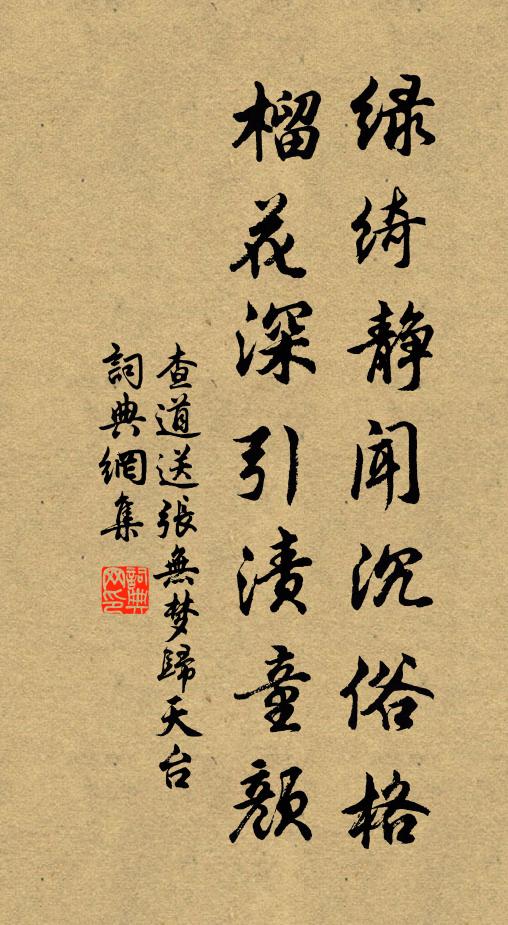 绿绮静闻沉俗格
榴花深引渍童颜
查道送張無梦歸天台
詞典網集
詞典網印